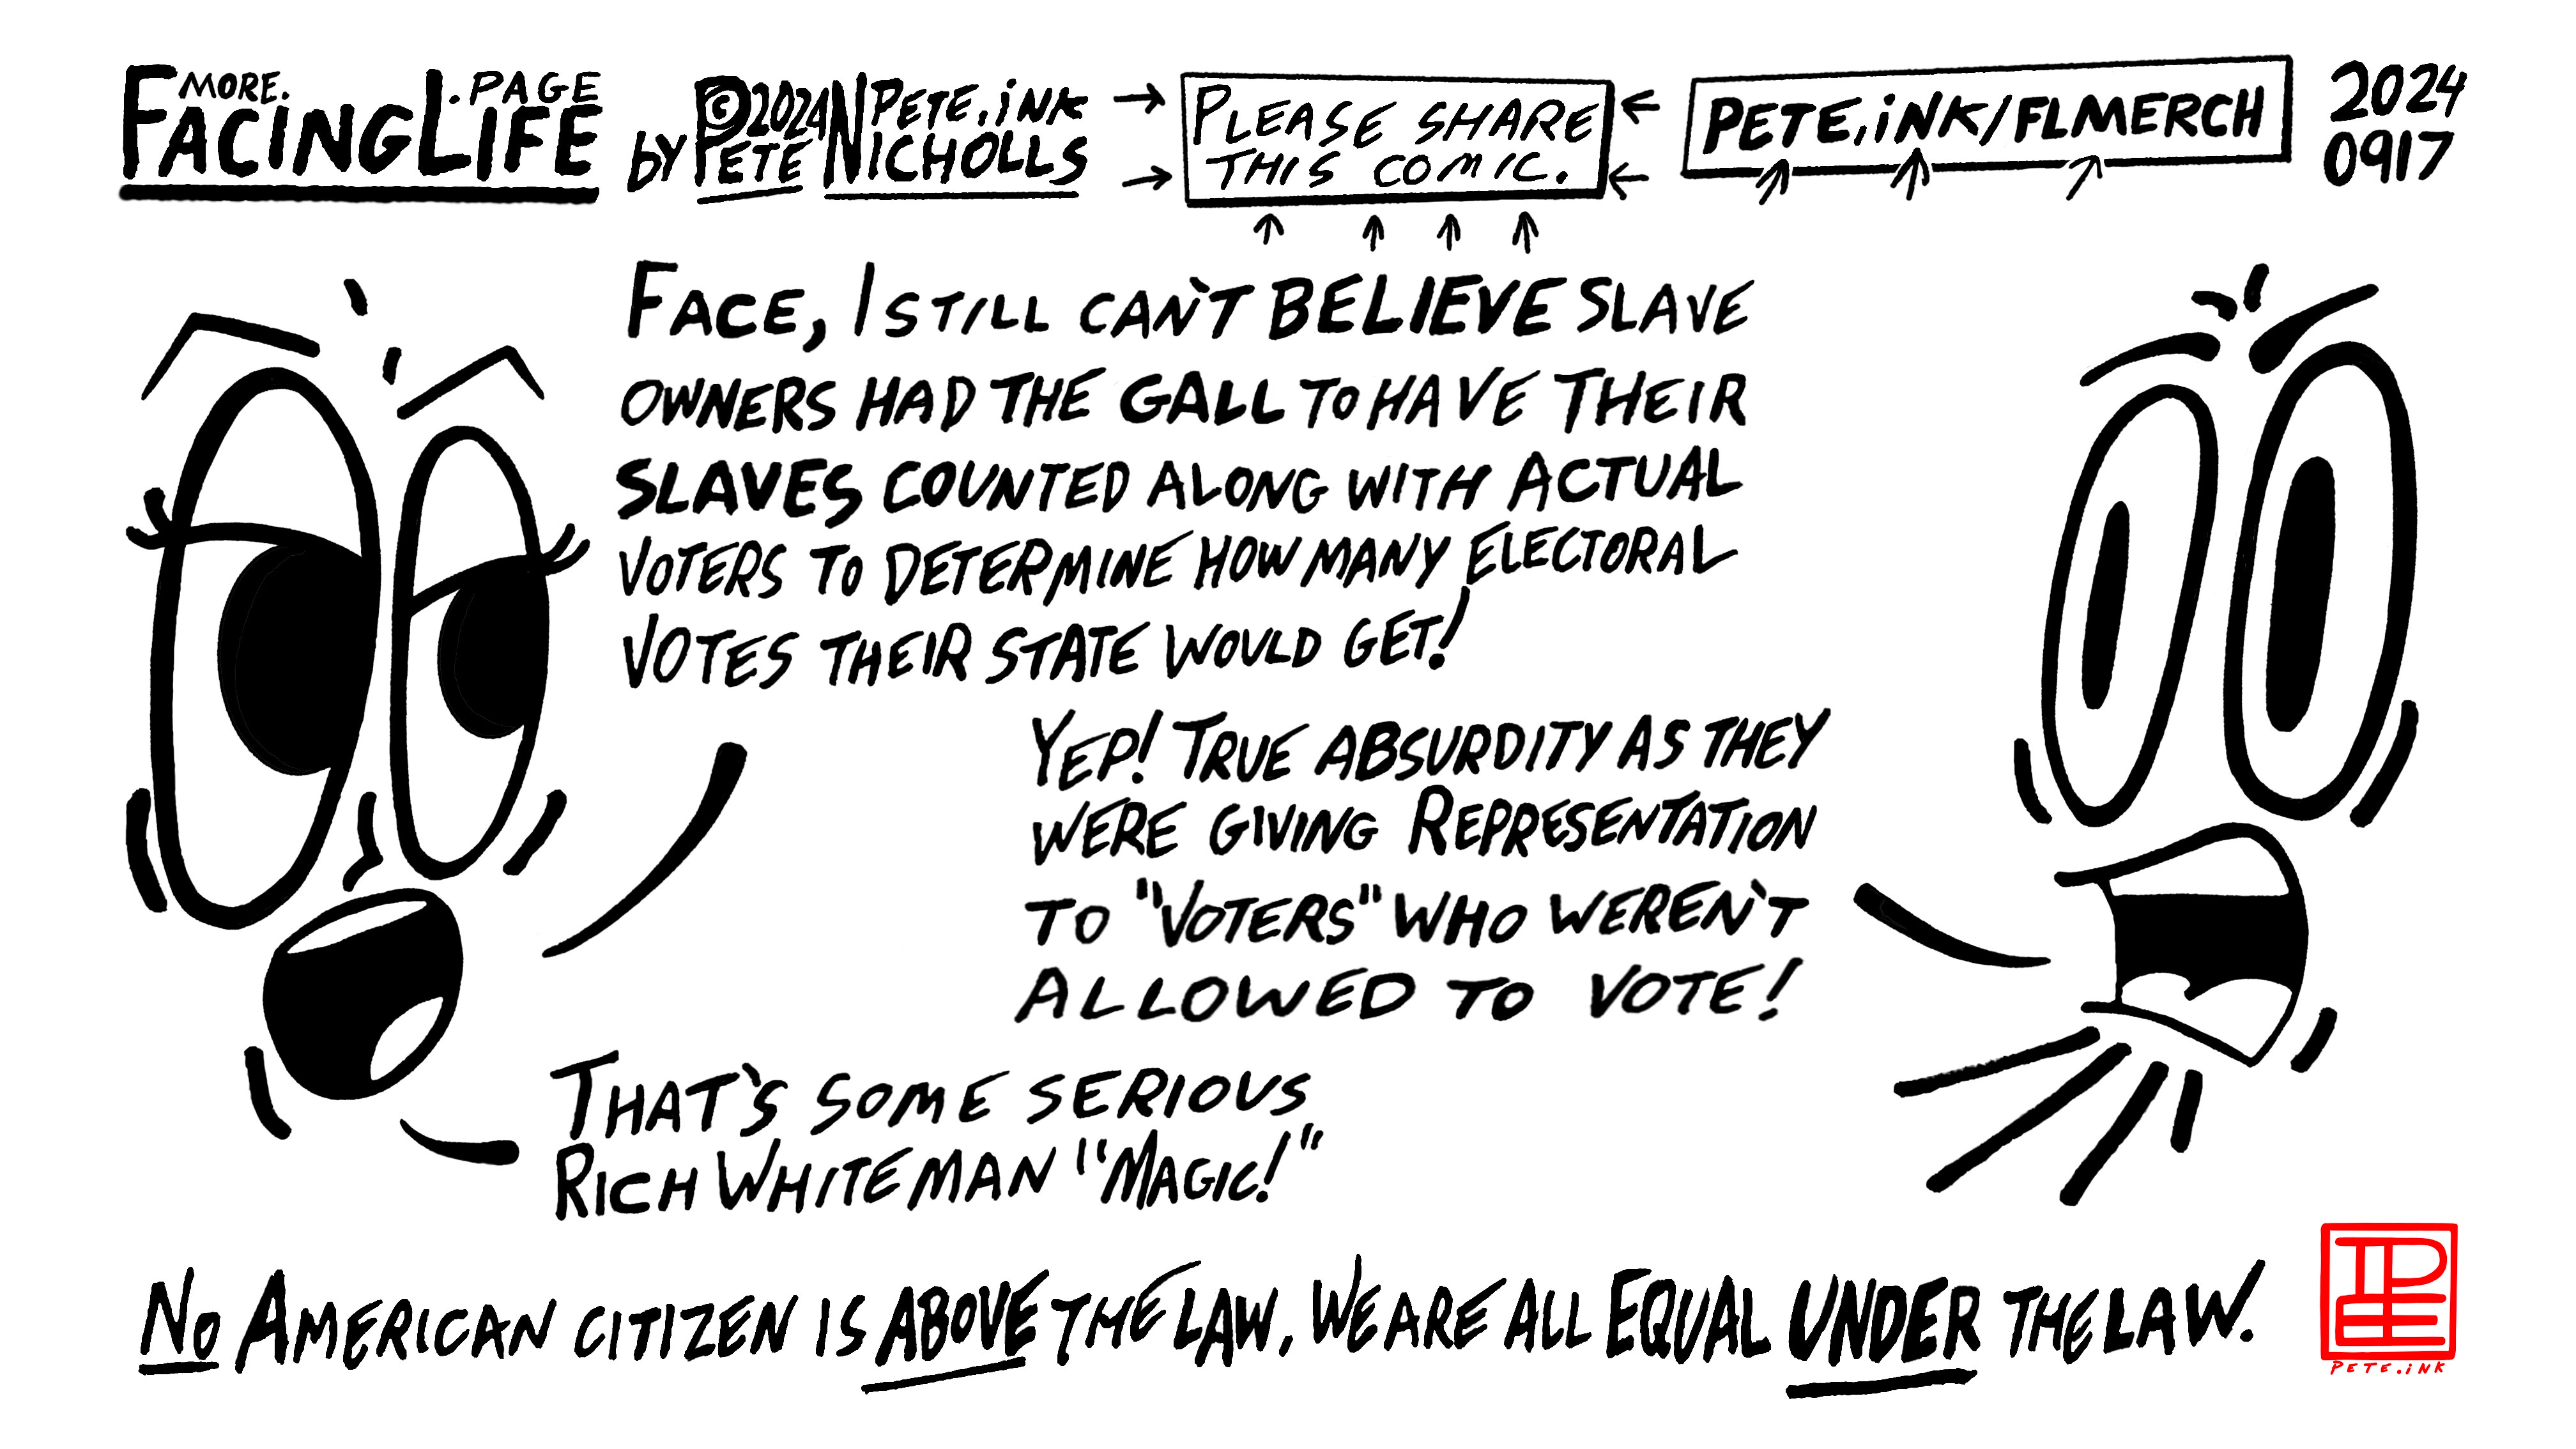 MORE. .PAGE
FACINGLIFE
©2024 PETE.iNK
by PETE NICHOLLS
PLEASE SHARE
THIS COMIC.
PETE.iNK/FLMERCH
2024
0917
FACE, I STILL CAN'T BELIEVE SLAVE
OWNERS HAD THE GALL TO HAVE THEIR
SLAVES COUNTED ALONG WITH ACTUAL
VOTERS TO DETERMINE HOW MANY ELECTORAL
VOTES THEIR STATE WOULD GET!
YEP! TRUE ABSURDITY AS THEY
WERE GIVING REPRESENTATION
TO "VOTERS" WHO WEREN'T
ALLOWED TO VOTE!
THAT'S SOME SERIOUS
RICH WHITE MAN "MAGIC!"
NO AMERICAN CITIZEN IS ABOVE THE LAW. WE ARE ALL EQUAL UNDER THE LAW.
PETE.iNK